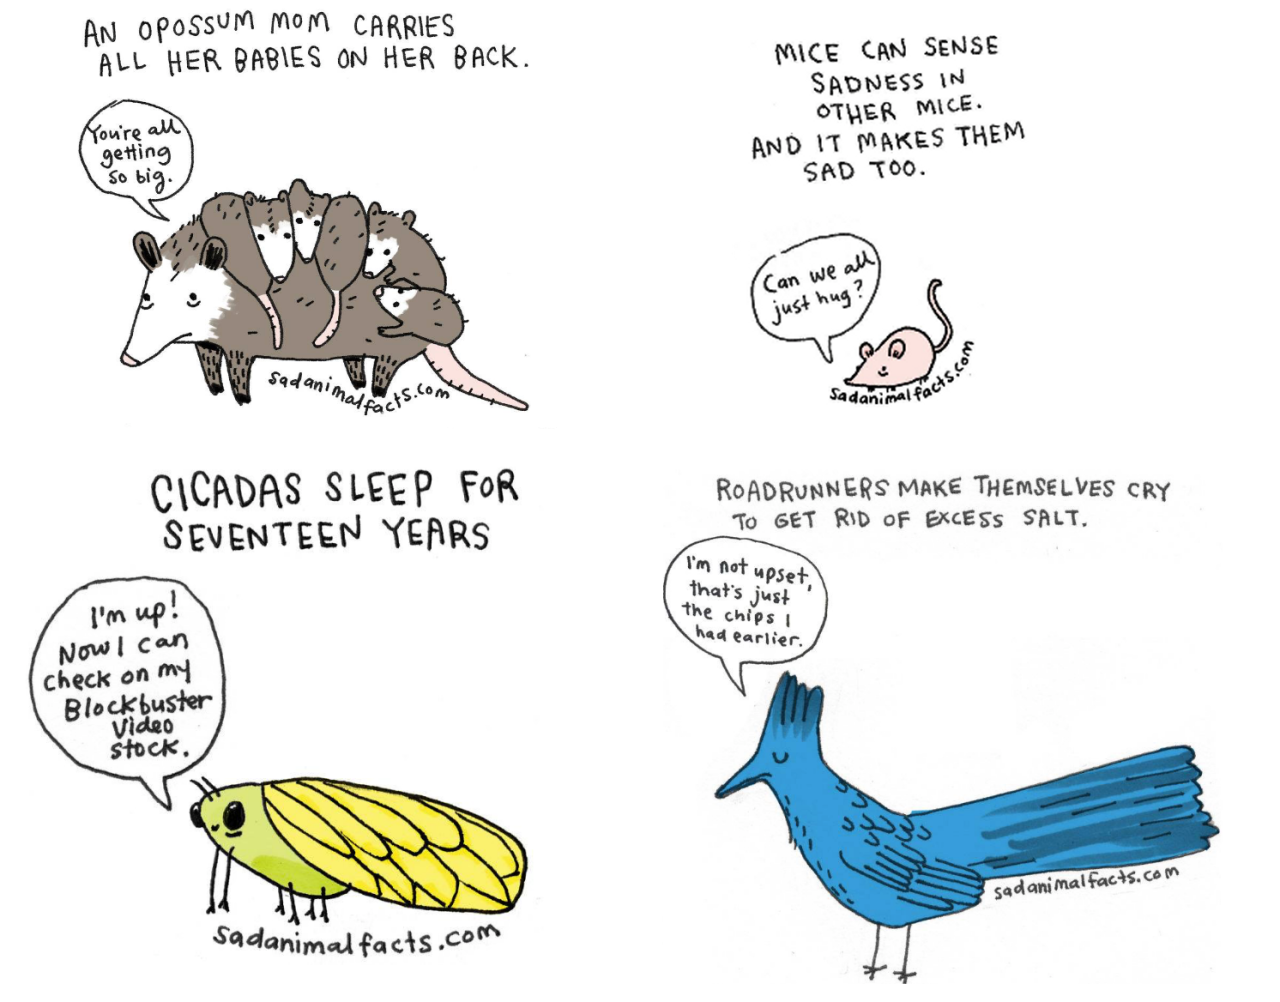 AN OPOSSUM MOM CARRIES
ALL HER BABIES ON HER BACK.
You're all
getting
so big.
sadanimalfacts.com
MICE CAN SENSE
SADNESS IN
OTHER MICE.
AND IT MAKES THEM
SAD TOO.
Can we all
just hug?
sadanimalfacts.com
CICADAS SLEEP FOR
SEVENTEEN YEARS
I'm up!
Now I can
check on my
Blockbuster
Video
stock.
sadanimalfacts.com
ROADRUNNERS MAKE THEMSELVES CRY
TO GET RID OF EXCESS SALT.
I'm not upset,
that's just
the chips I
had earlier.
sadanimalfacts.com